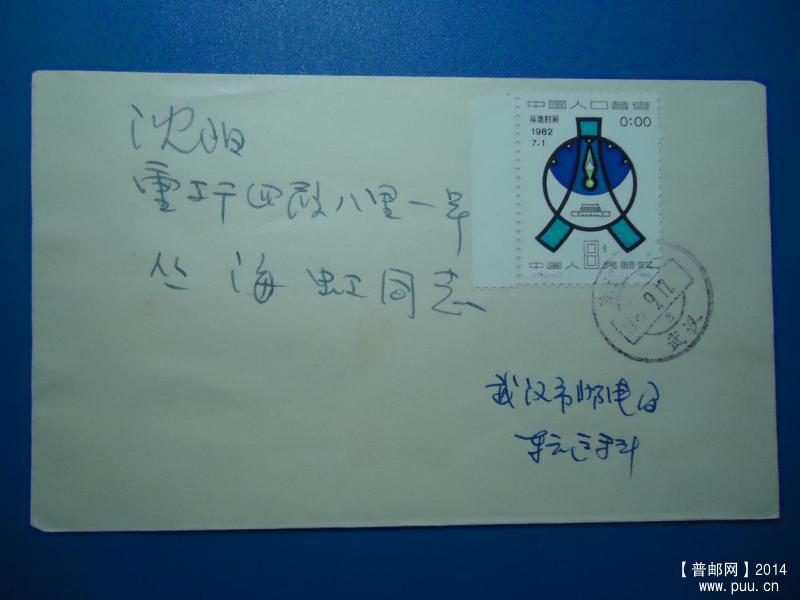 中国人口普查
标准时间 0:00
1982
7.1
8分
中国人民邮政
沈阳
重工街四段八里一号
丛海虹同志
武汉
武汉市邮电局
【普邮网】2014
www.puu.cn